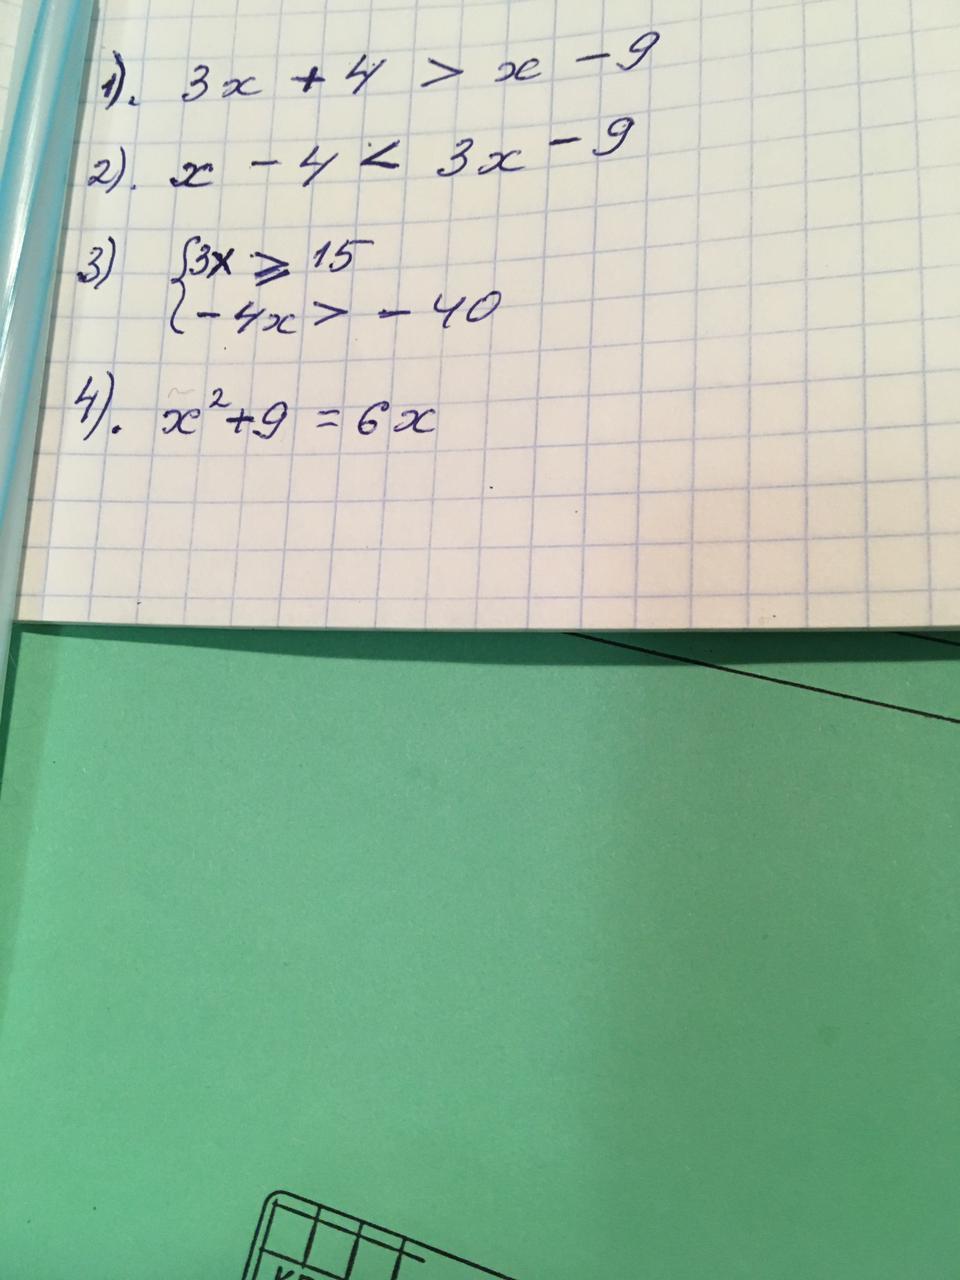 1). 3x + 4 > x - 9
2). x - 4 < 3x - 9
3) {3x ⩾ 15
- 4x > - 40
4). x² + 9 = 6x